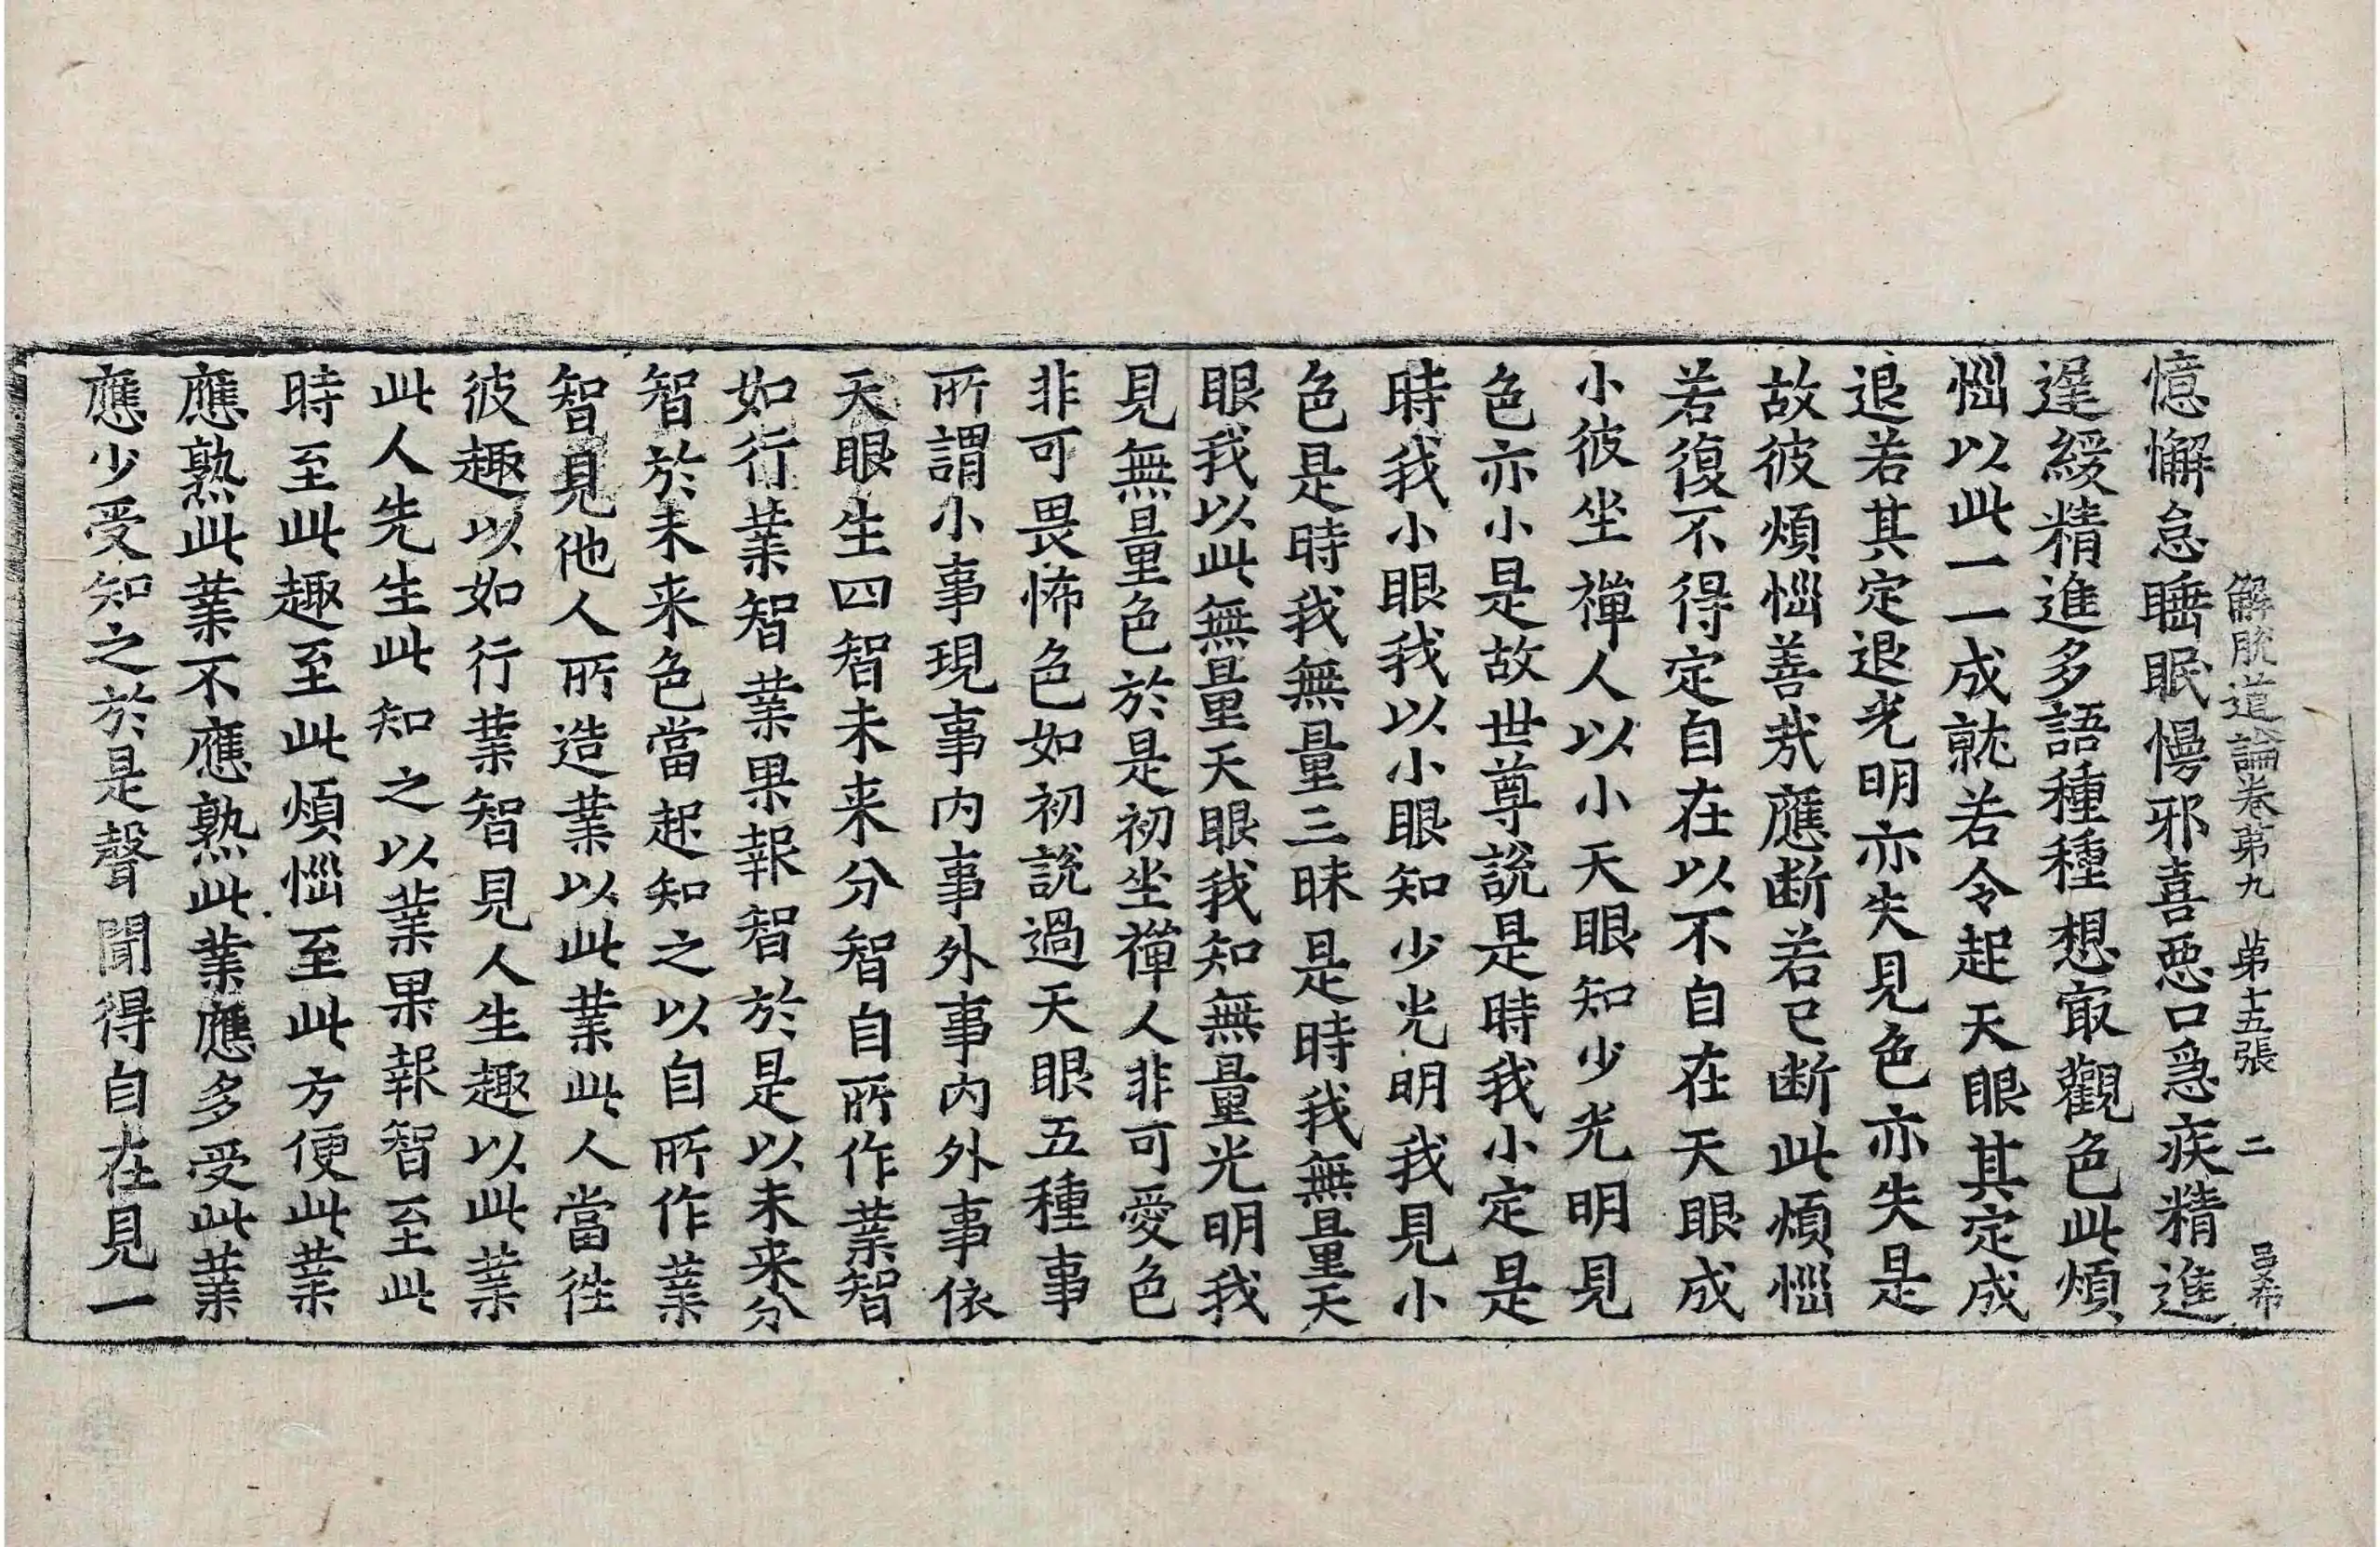 解脫道論卷第九 第十五張 二 昌希
憶懈怠睡眠慢邪喜惡口急疾精進
遲緩精進多語種種想㝡觀色此煩
惱以此一一成就若令起天眼其定成
退若其定退光明亦失見色亦失是
故彼煩惱善哉應断若已断此煩惱
若復不得定自在以不自在天眼成
小彼坐禪人以小天眼知少光明見
色亦小是故世尊說是時我小定是
時我小眼我以小眼知少光明我見小
色是時我無量三昧是時我無量天
眼我以此無量天眼我知無量光明我
見無量色於是初坐禪人非可愛色
非可畏怖色如初說過天眼五種事
所謂小事現事內事外事內外事依
天眼生四智未来分智自所作業智
如行業智業果報智於是以未来分
智於未来色當起知之以自所作業
智見他人所造業以此業此人當徃
彼趣以如行業智見人生趣以此業
此人先生此知之以業果報智至此
時至此趣至此煩惱至此方便此業
應熟此業不應熟此業應多受此業
應少受知之於是聲聞得自在見一